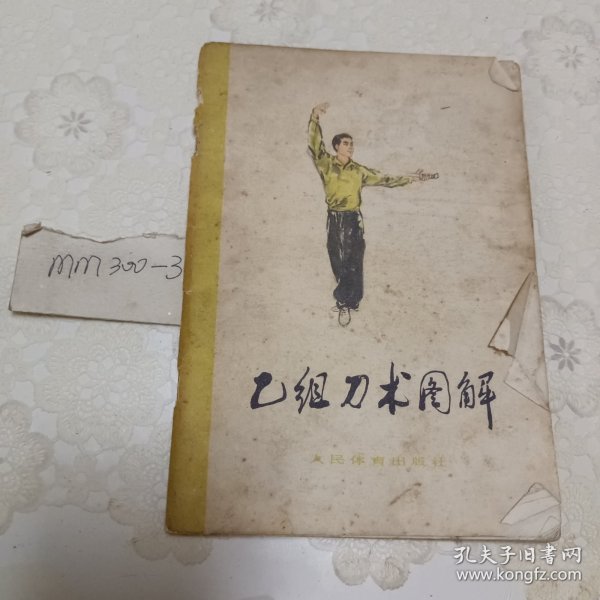 mm 300-3
乙组刀术图解
人民体育出版社
孔夫子旧书网
www.kongfz.com